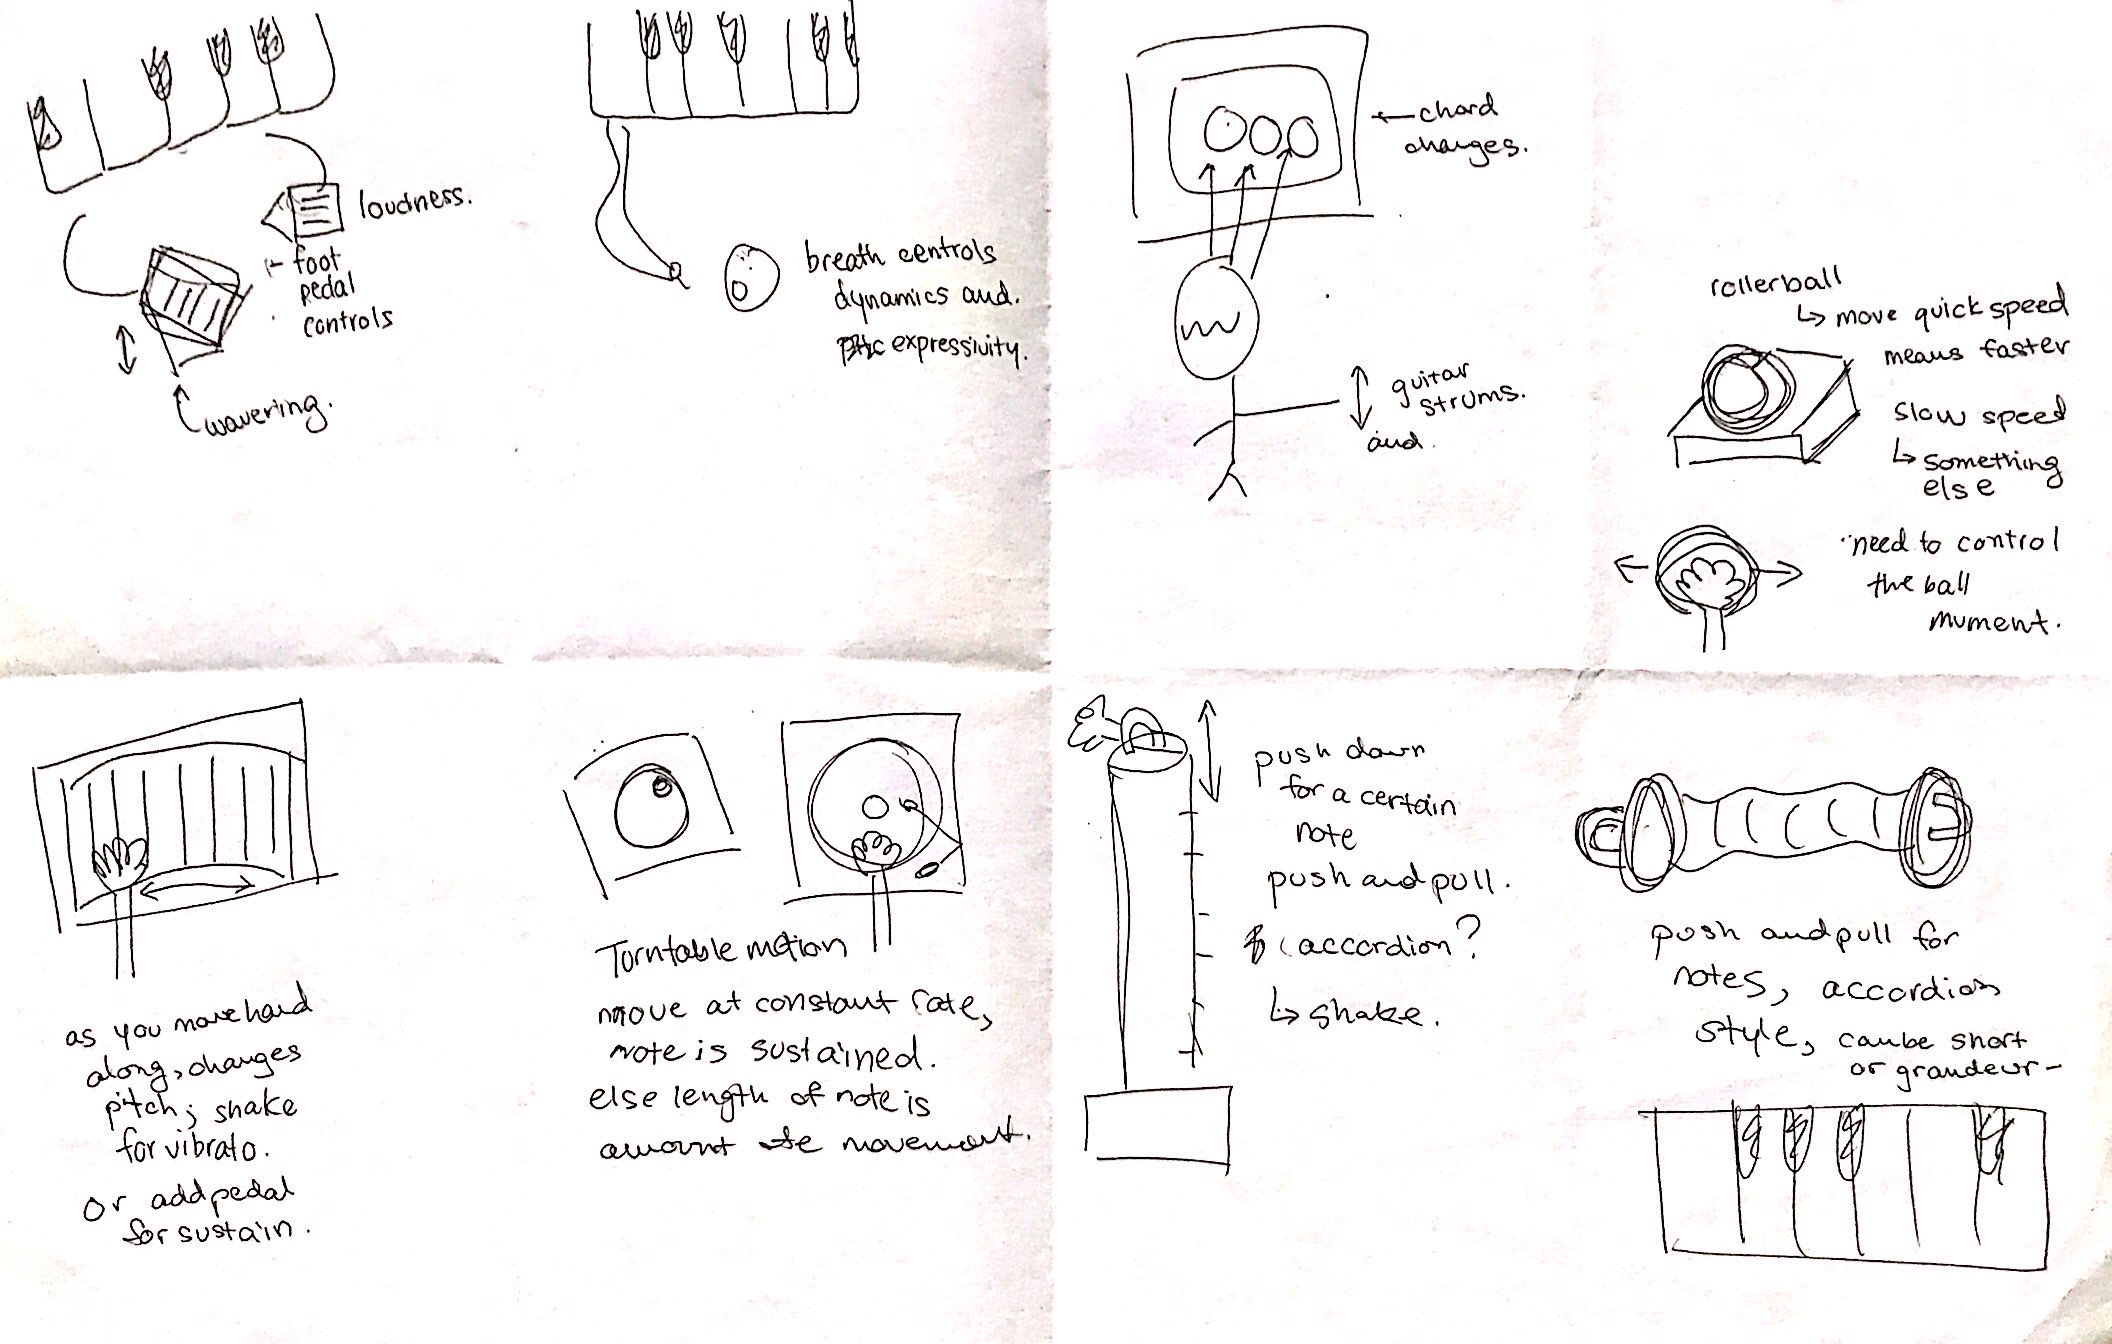 loudness.
foot
pedal
controls
wavering.
breath controls
dynamics and.
expressivity.
chord
changes.
guitar
strums.
and.
rollerball
↳ move quick speed
means faster
slow speed
↳ something
else
need to control
the ball
mument.
as you move hand
along, changes
pitch; shake
for vibrato.
or add pedal
for sustain.
Turntable motion
move at constant rate,
note is sustained.
else length of note is
amount movement.
push down
for a certain
note
push and pull.
(accordion?
↳ shake.
push and pull for
notes, accordion
style, can be short
or grandeur-